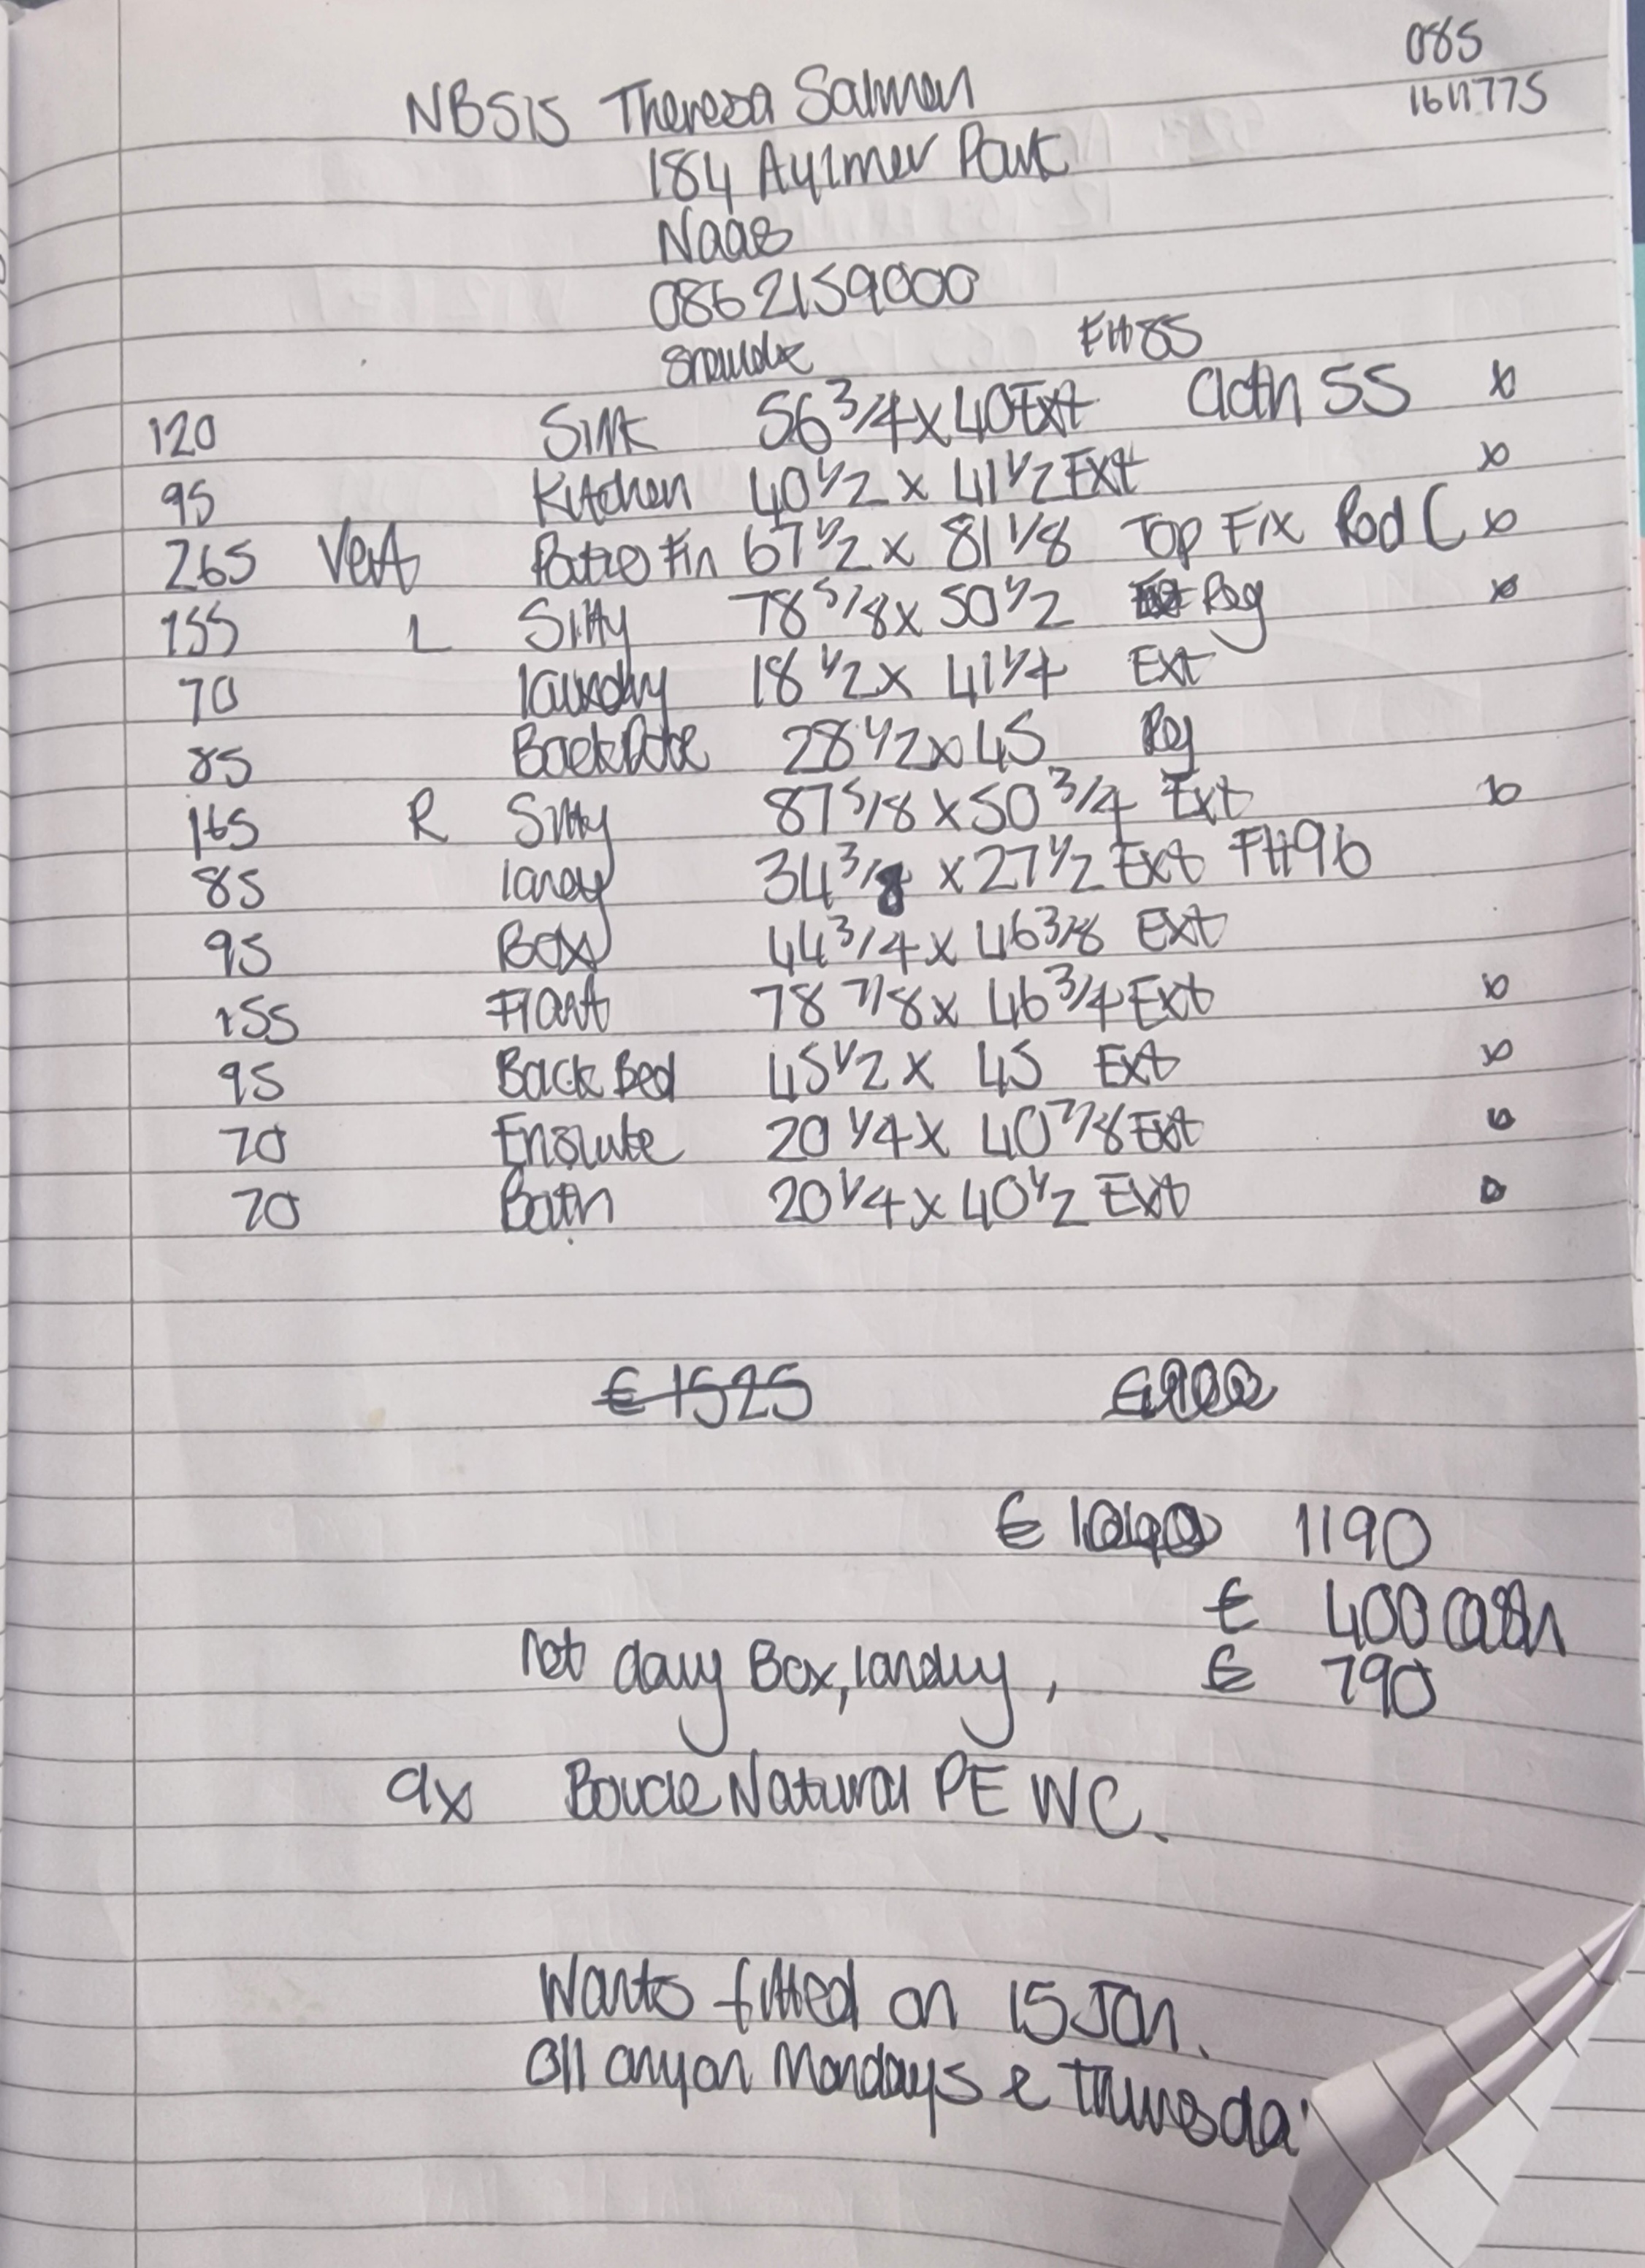 085
NBS15 Theresa Salmon 1611775
184 Aylmer Park
Naas
0862159000
FH85
120 Sink 56 3/4 x 40 Ext Cloth 55 x
95 Kitchen 40 1/2 x 41 1/2 Ext x
265 Vert Patio Fin 67 1/2 x 81 1/8 Top Fix Rod C x
155 L Sitty 78 5/8 x 50 1/2 Reg x
70 laundry 18 1/2 x 41 1/4 Ext
85 Back 28 1/2 x 45 Reg
165 R Sitty 87 5/8 x 50 3/4 Ext x
85 landy 34 3/8 x 27 1/2 Ext FH96
95 Box 44 3/4 x 46 3/8 Ext
155 Front 78 7/8 x 46 3/4 Ext x
95 Back Bed 45 1/2 x 45 Ext x
70 Ensuite 20 1/4 x 40 7/8 Ext
70 Bath 20 1/4 x 40 1/2 Ext
€1525
€ 1190
€ 400 cash
not Box, landry, € 790
9x Boucle Natural PE WC.
Wants fitted on 15 Jan.
Off on Mondays &